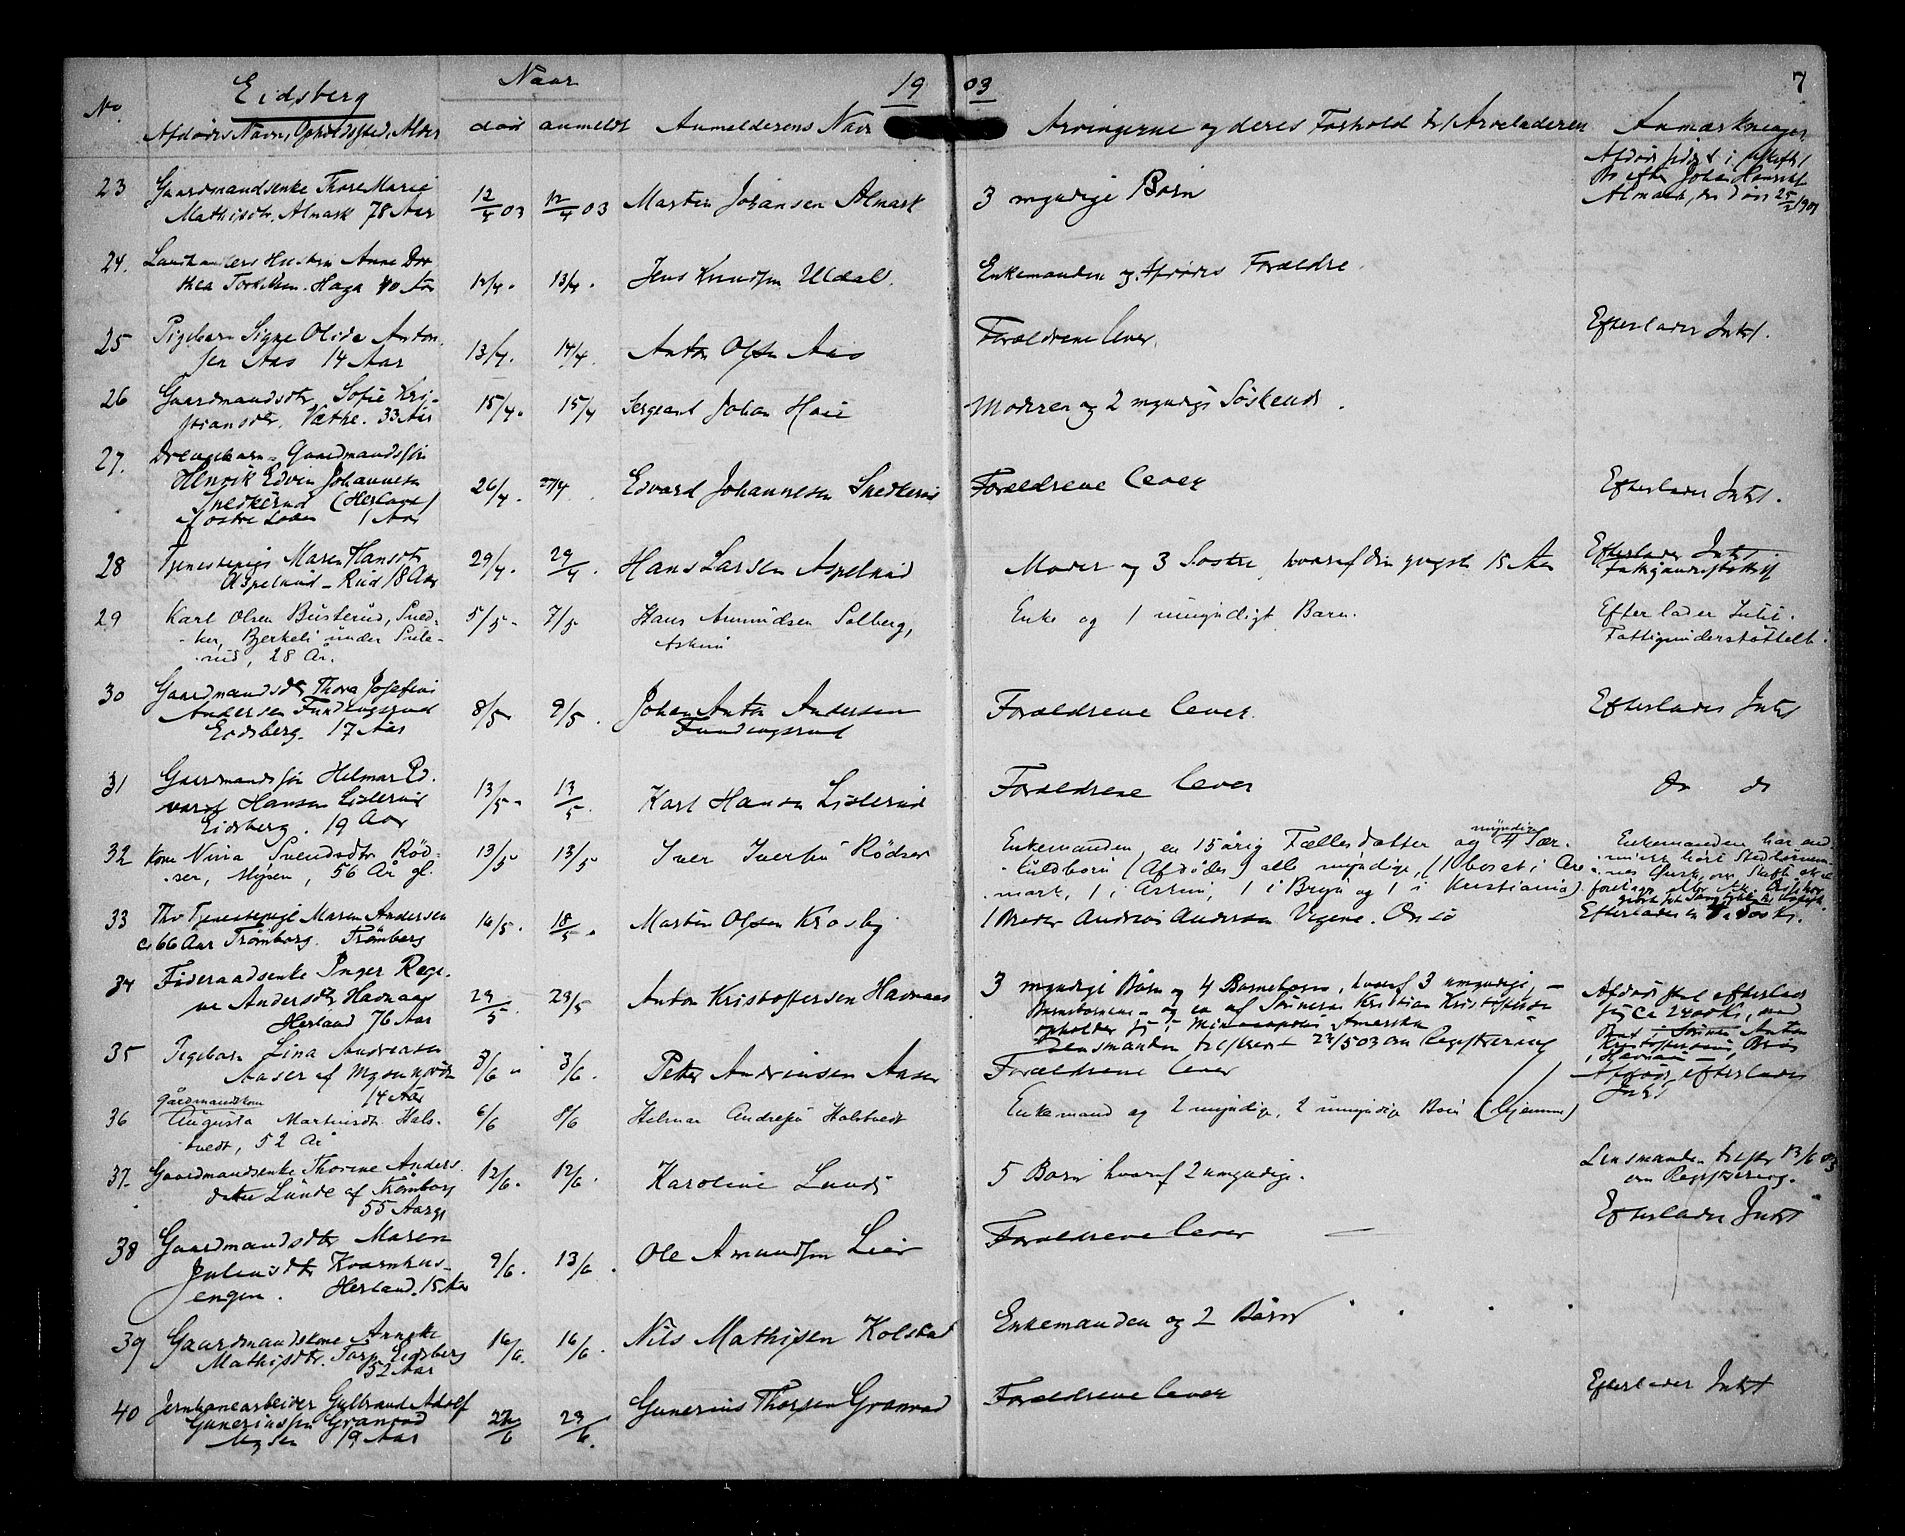 Eidsberg
Naar
19 03
7
No.
Afdødes Navn, Opholdssted, Alder
død anmeldt Anmelderens Navn
Arvingerne og deres Forhold til Arveladeren
Anmærkninger
23 Gaardmandsenke Thore Marie
Mathisdtr. Almark 78 Aar
12/4 03 12/4 03 Martin Johansen Almark
3 myndige Børn
Afdøde i uskiftet
Bo efter Johan
Almark, der døde 25/2 1901
24. Anne Dor
thea Torkilsen. Haga 40 Aar
12/4. 13/4. Jens Knudsen Uldal.
Enkemanden og Afdødes Forældre.
25 Pigebarn Signe Olide Anton
sen Aas 14 Aar
13/4. 14/4. Anton Olsen Aas
Forældrene lever.
Efterlader Intet.
26 Gaardmandsdtr. Sofie Kri-
stiansdtr. Væthe. 33 Aar
15/4. 15/4 Sergeant Johan Haie
Moderen og 2 myndige Søskende.
27. Drengebarn - Gaardmandssøn
Henrik Edvin Johannesen
Snekkerud (Herland)
af østre 1 Aar
26/4. 27/4. Edvard Johannesen Snekkerud
Forældrene lever
Efterlader Intet.
28 Tjenestepige Maren Hansdtr.
Aspelund - Rud 18 Aar
29/4. 29/4. Hans Larsen Aspelund
Moder og 3 Søstre, hvoraf den yngste 15 Aar
Efterlader Intet
Fattigunderstøttet
29 Karl Olsen Busterud, Sned-
ker, Bjerkeli under Sule-
rud, 28 År.
5/5. 7/5 Hans Amundsen Solberg,
Askim
Enke og 1 umyndigt Barn.
Efterlader Intet.
Fattigunderstøttelse.
30 Gaardmandsdtr. Thora Josefine
Andersen Fundingsrud
Eidsberg. 17 Aar
8/5 9/5. Johan Anton Andersen
Fundingsrud
Forældrene lever.
Efterlader Intet
31 Gaardmandssøn Helmar Ed.
vard Hansen Lislerud
Eidsberg. 19 Aar
13/5. 13/5. Karl Hansen Lislerud
Forældrene lever
do do
32 Kone Nina Svendsdtr. Rød-
ser, Mysen, 56 År gl.
13/5 13/5 Iver Iversen Rødser
Enkemanden, en 15 årig Fællesdatter og 4 myndige Sær-
kuldbørn (Afdødes) alle myndige, (1 bosat i Are-
mark, 1 i Askim, 1 i Bryn og 1 i Kristiania)
Enkemanden har end
33 Tjenestepige Maren Andersen
ca 66 Aar Trømborg. Trømborg
16/5. 18/5. Martin Olsen Krosby
1 Broder Andreas Andersen Vegene. Onsø
34 Føderaadsenke Inger Regi-
ne Andersdtr. Havnaas
Herland 76 Aar
23/5. 23/5. Anton Kristoffersen Havnaas
3 myndige Børn og 4 Børnebørn, hvoraf 3 umyndige, -
Børnebørnene - og en af Sønnerne Kristian Kristoffersen
opholder sig i Minneapolis Amerika
Lensmanden tilskrevet 23/5 03 om Registrering
Afdøde skal efterlade
sig ca 2400 kr, med
Sønnen Anton
Kristoffersen,
35 Pigebarn Lina Andreasen
Aaser af Mysen
14 Aar
3/6 3/6. Petter Andreasen Aaser
Forældrene lever
Afdøde efterlader
Intet
36 Gårdmandskone
Augusta Martinsdtr. Hals-
tvedt, 52 År
6/6 8/6 Helmar Andresen Halstvedt
Enkemand og 2 myndige, 2 umyndige Børn (hjemme)
37. Gaardmandsenke Thorine Anders-
datter Lunde af Trømborg
55 Aar gl
12/6. 12/6. Karoline Lunde
5 Børn hvoraf 2 umyndige.
Lensmanden tilskr 13/6 03
om Registrering.
38 Gaardmandsdtr Maren
Juliusdtr. Kvarnhus-
engen. Herland. 15 Aar
9/6. 13/6. Ole Amundsen Lier
Forældrene lever
Efterlader Intet
39 Gaardmandskone Anneke
Mathisdtr. Torp Eidsberg
52 Aar
16/6. 16/6. Nils Mathisen Kolstad
Enkemanden og 2 Børn
40 Jernbanearbeider Gulbrand Adolf
Guneriussen Granrud
Mysen 19 Aar
27/6 29/6. Gunerius Thorsen Granrud
Forældrene lever
Efterlader Intet